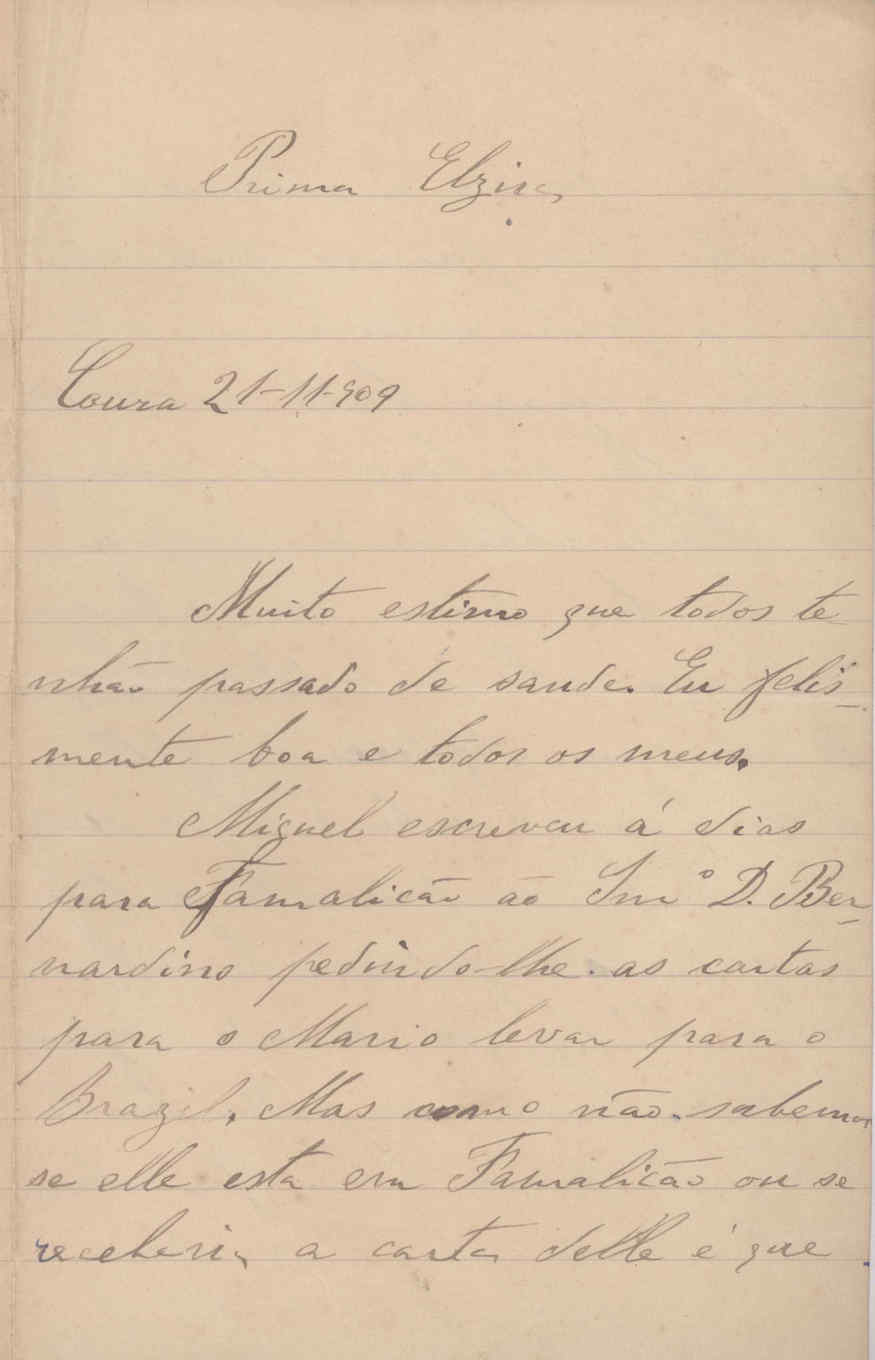 Prima Elzira
Coura 21-11-909
Muito estimo que todos te
nhão passado de saude. Eu felis-
mente boa e todos os meus.
Miguel escreveu á dias
para Famalicão ao Snr.º D. Ber-
nardino pedindo-lhe as cartas
para o Mario levar para o
Brazil. Mas como não sabemos
se elle esta em Famalicão ou se
receberia a carta delle é que